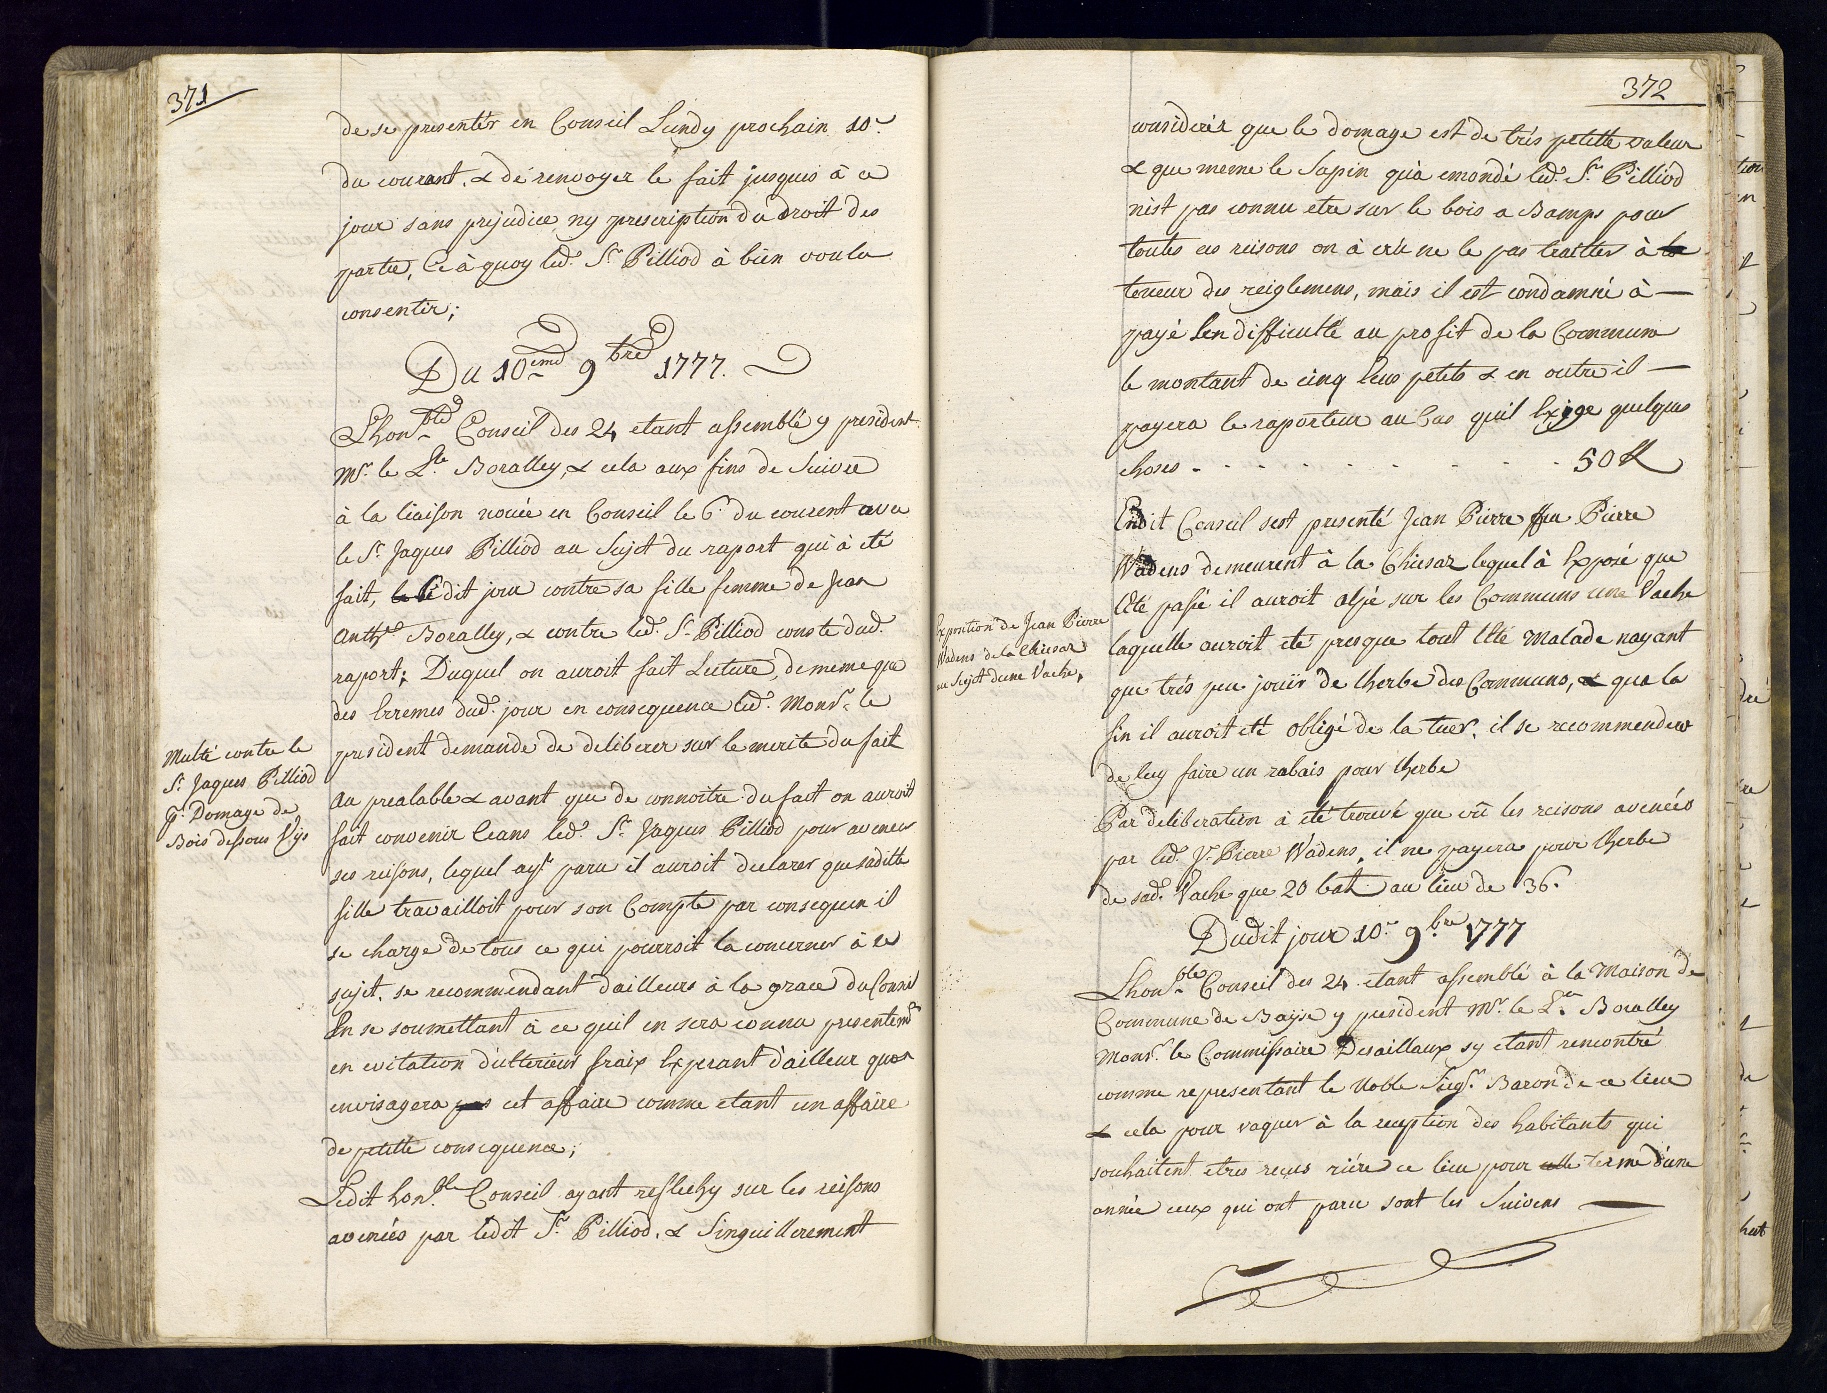 371
de se presenter en Conseil Lundy prochain 10.e
du courant. & de renvoyer le fait jusques à ce
jour sans prejudice ny prescription du droit des
partie, Ce à quoy led. Sr. Pilliod à bien voulu
consentir;
Du 10eme 9bre 1777.
Lhonble Conseil des 24 etant assemblé y president
Mr. le Lt. Boralley, & cela aux fins de Suivre
à la liaison nouée en Conseil le 6e du courent avec
le Sr. Jaques Pilliod au Sujet du raport qui à eté
fait, ledit jour contre sa fille femme de Jean
Anthe. Boralley, & contre led. Sr. Pilliod conste dud.
raport; Duquel on auroit fait Luture, de meme que
des Erremes dud. jour en consequence led. Monsr. le
president demande de deliberer sur le merite du fait
Multé contre le
Sr. Jaques Pilliod
pr. Domage de
Bois dessous Vijs
Au prealable & avant que de connoitre du fait on auroit
fait convenir Ceans led. Sr. Jaques Pilliod pour avencer
ses reisons, lequel ayt. paru il auroit declarer que saditte
fille travailloit pour son Compte par consequen il
se charge de tous ce qui pourroit la concerner à ce
sujet. se recommendant dailleurs à la grace du Conseil
En se soumettant à ce quil en sera connu presentemt.
en evitation d'ulterieur fraix Esperant d'ailleur quon
envisagera cet affaire comme etant un affaire
de petitte consequence;
Ledit honble. Conseil ayant reflechy sur les reisons
avencées par ledit Sr. Pilliod. & Singuillierement
372
considerér que le domage est de trés petitte valeur
& que meme le Sapin qu'à emondé led. Sr. Pilliod
n'est pas connu etre sur le bois a Bamps pour
toutes ces reisons on à crû ne le pas traitter à la
teneur des reiglemens, mais il est condamné à —
payé sen difficulté au profit de la Commune
le montant de cinq Ecus petits & en outre il —
payera le raporteur au Cas quil Exige quelques
choses . . . . . . . . . . 50
Endit Conseil sest presenté Jean Pierre ffeu Pierre
Wadens demeurent à la Chiesaz lequel à Exposé que
lEté passé il auroit alpé sur les Communs une Vache
Exposition de Jean Pierre
Wadens de la Chiesaz
au Sujet dune Vache,
laquelle auroit eté presque tout lEté Malade nayant
que trés peu jouïr de lherbe des Communs, & que la
fin il auroit eté obligé de la tuer, il se recommendew
de luy faire un rabais pour lherbe
Par deliberation à eté trouvé que vû les reisons avencées
par led. Jn. Pierre Wadens, il ne payera pour lherbe
de sad. Vache que 20 batz au lieu de 36.
Dudit jour 10e 9bre 1777
Lhonble Conseil des 24 etant assemblé à la Maison de
Commune de Bayse y president Mr. le Lt. Boralley
Monsr. le Commissaire Desaillaux sy etant rencontré
comme representant le Noble Seigr. Baron de ce lieu
& cela pour vaquer à la reception des habitants qui
souhaitent etres reçus riére ce lieu pour terme d'une
année ceux qui ont paru sont les Suivens